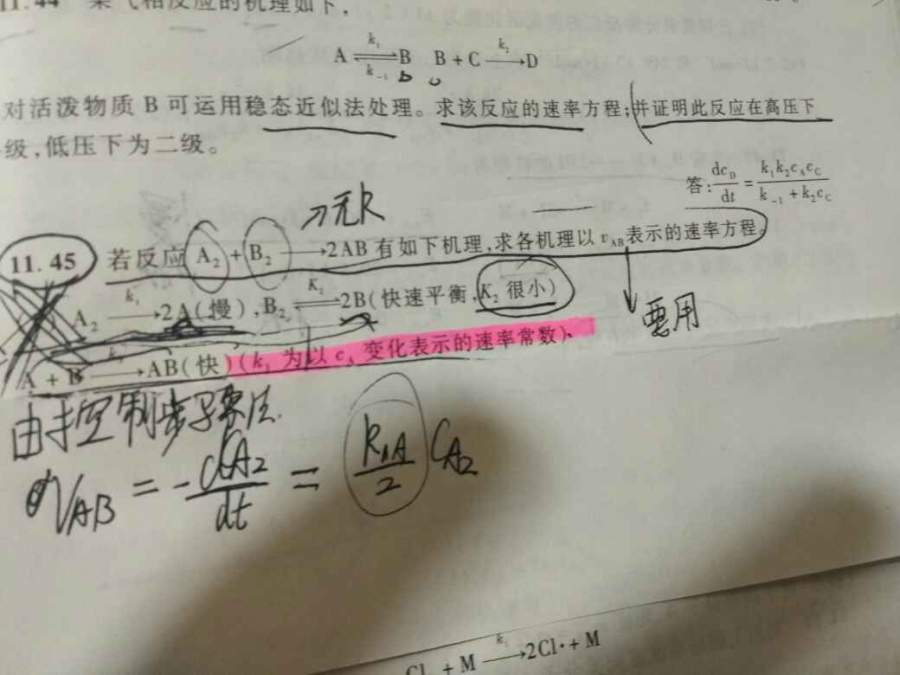 11.44 某气相反应的机理如下,
A ⇌ B B + C → D
k₁ k₋₁ k₂
对活泼物质 B 可运用稳态近似法处理。求该反应的速率方程;并证明此反应在高压下
级,低压下为二级。
答: dc_D/dt = k₁k₂c_Ac_C / (k₋₁ + k₂c_C)
11.45 若反应 A₂ + B₂ → 2AB 有如下机理,求各机理以 v_AB 表示的速率方程。
A₂ →(k₁) 2A(慢), B₂ ⇌(K₂) 2B(快速平衡, K₂ 很小)
要用
A + B → AB(快)(k₁ 为以 c_A 变化表示的速率常数)、
由控制步骤法
v_AB = -dC_A₂/dt = k₁A/2 C_A₂
Cl + M →(k₁) 2Cl· + M